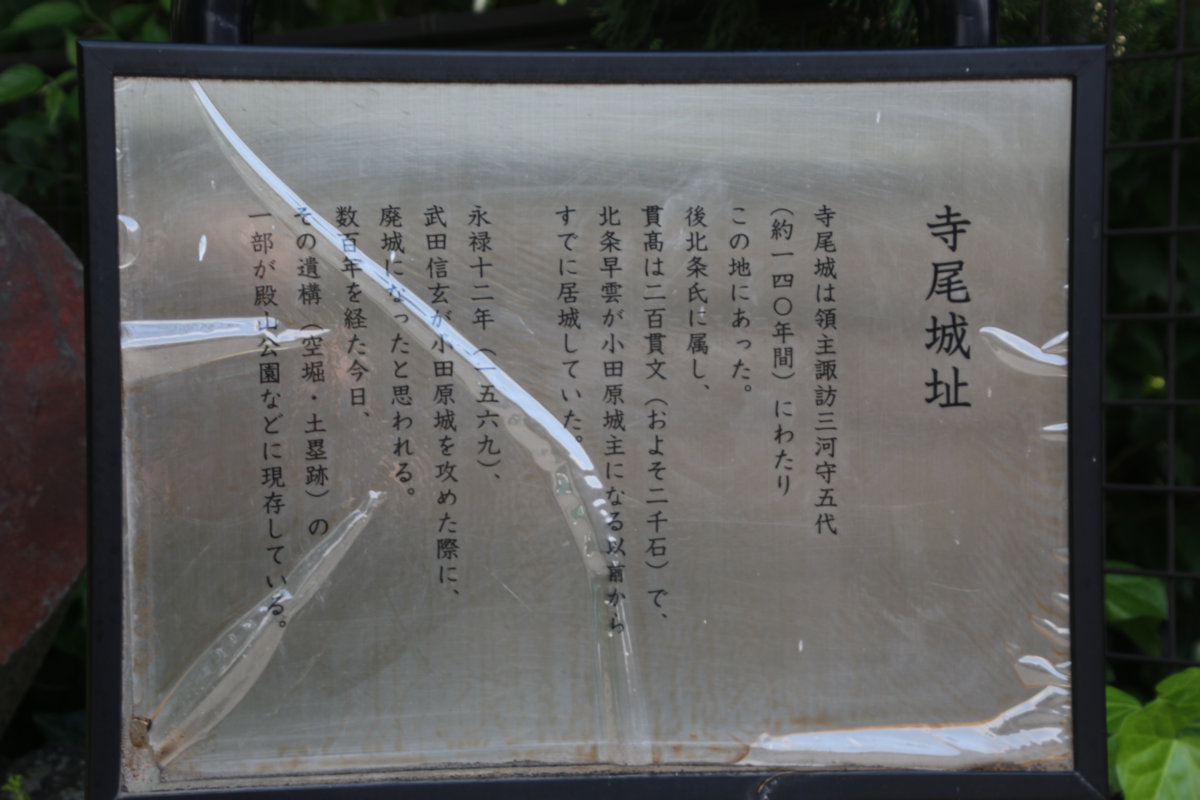 寺尾城址
寺尾城は領主諏訪三河守五代
(約一四〇年間)にわたり
この地にあった。
後北条氏に属し、
貫髙は二百貫文(およそ二千石)で、
北条早雲が小田原城主になる以前から
すでに居城していた。
永禄十二年(一五六九)、
武田信玄が小田原城を攻めた際に、
廃城になったと思われる。
数百年を経た今日、
その遺構(空堀・土塁跡)の
一部が殿山公園などに現存している。